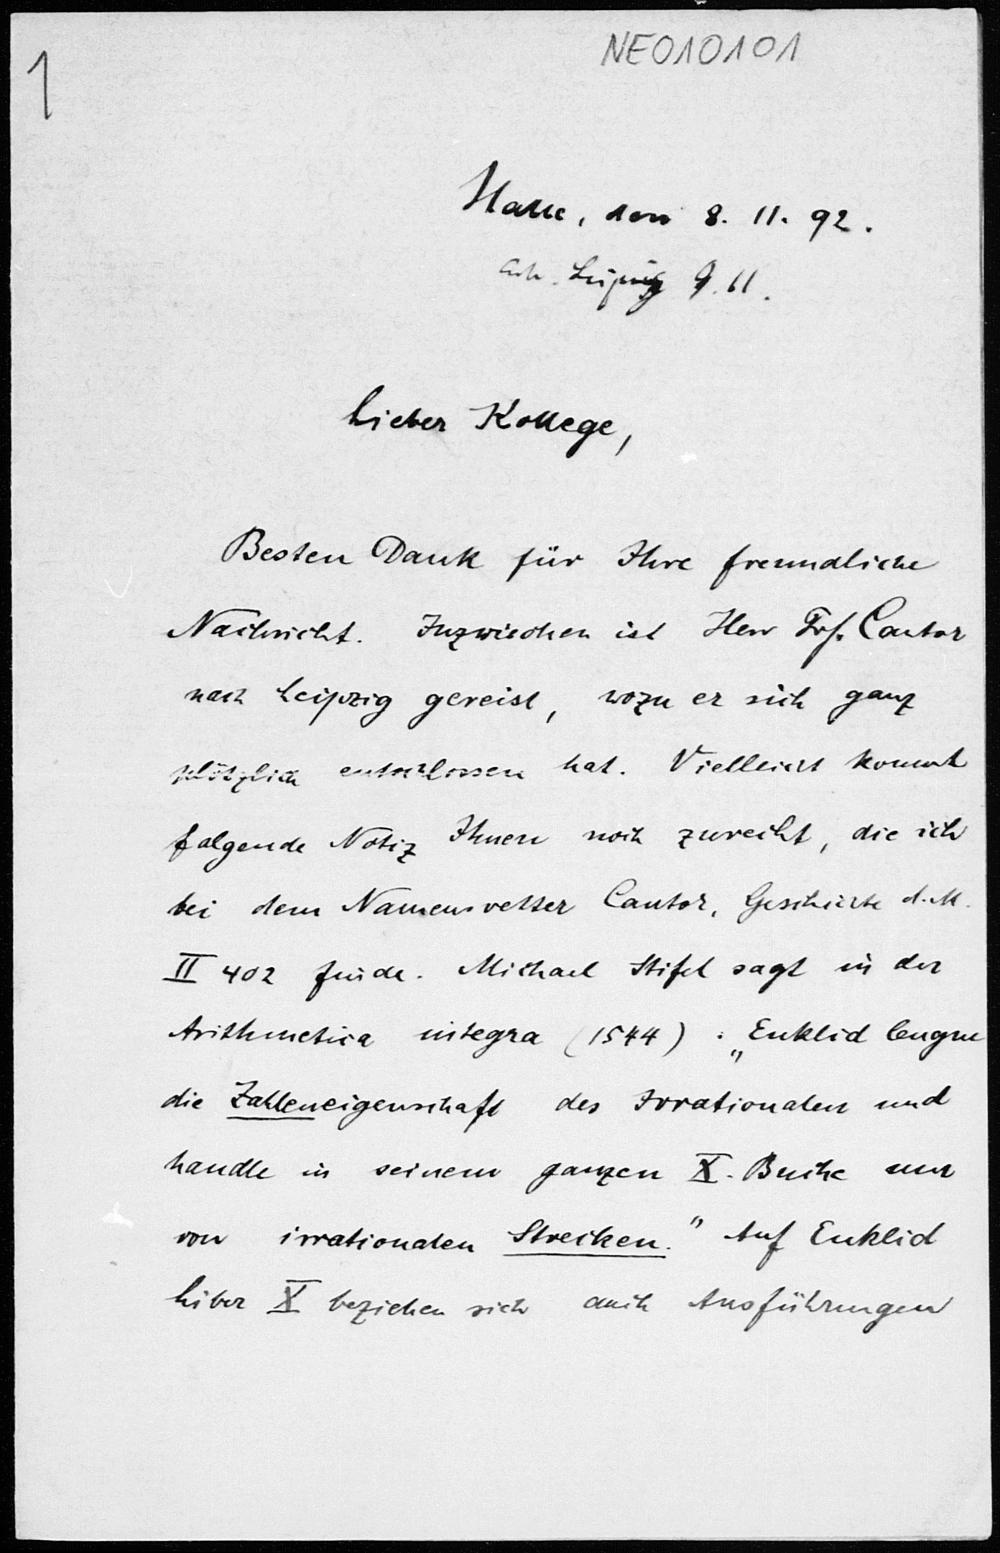 NE010101
1
Halle, den 8. 11. 92.
Leipzig 9. 11.
Lieber Kollege,
Besten Dank für Ihre freundliche
Nachricht. Inzwischen ist Herr Prf. Cantor
nach Leipzig gereist, wozu er sich ganz
plötzlich entschlossen hat. Vielleicht kommt
folgende Notiz Ihnen noch zurecht, die ich
bei dem Namensvetter Cantor, Geschichte d. M.
II 402 finde. Michael Stifel sagt in der
Arithmetica integra (1544): „Euklid leugne
die Zahleneigenschaft des Irrationalen und
handle in seinem ganzen X. Buche nur
von irrationalen Strecken.” Auf Euklid
liber X beziehen sich auch Ausführungen